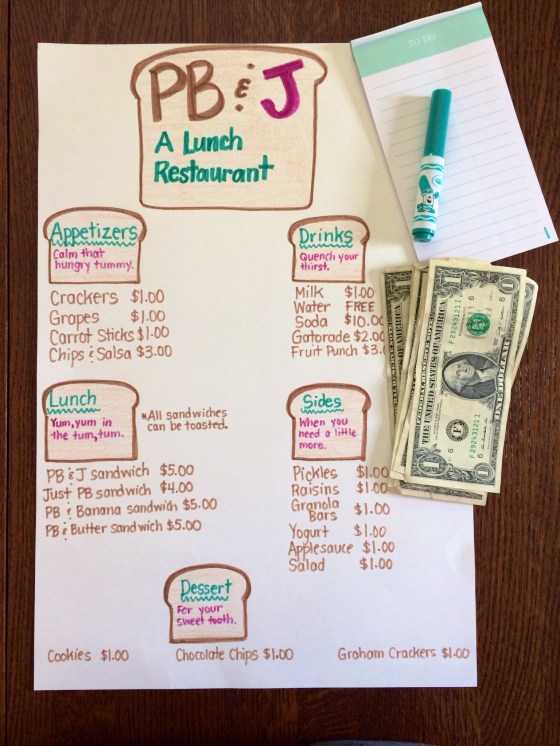 PB & J
A Lunch
Restaurant
TO DO
Appetizers
Calm that
hungry tummy.
Crackers $1.00
Grapes $1.00
Carrot Sticks $1.00
Chips & Salsa $3.00
Drinks
Quench your
thirst.
Milk $1.00
Water FREE
Soda $10.00
Gatorade $2.00
Fruit Punch $3.
Lunch
Yum, yum in
the tum, tum.
*All sandwiches
can be toasted.
PB & J sandwich $5.00
Just PB sandwich $4.00
PB & Banana sandwich $5.00
PB & Butter sandwich $5.00
Sides
When you
need a little
more.
Pickles $1.00
Raisins $1.00
Granola
Bars $1.00
Yogurt $1.00
Applesauce $1.00
Salad $1.00
Dessert
For your
sweet tooth.
Cookies $1.00
Chocolate Chips $1.00
Graham Crackers $1.00
FEDERAL RESERVE NOTE
THE UNITED STATES OF AMERICA
F29243121I
F29243121I
ONE DOLLAR
1
1
1
1
6
6
6
6
F